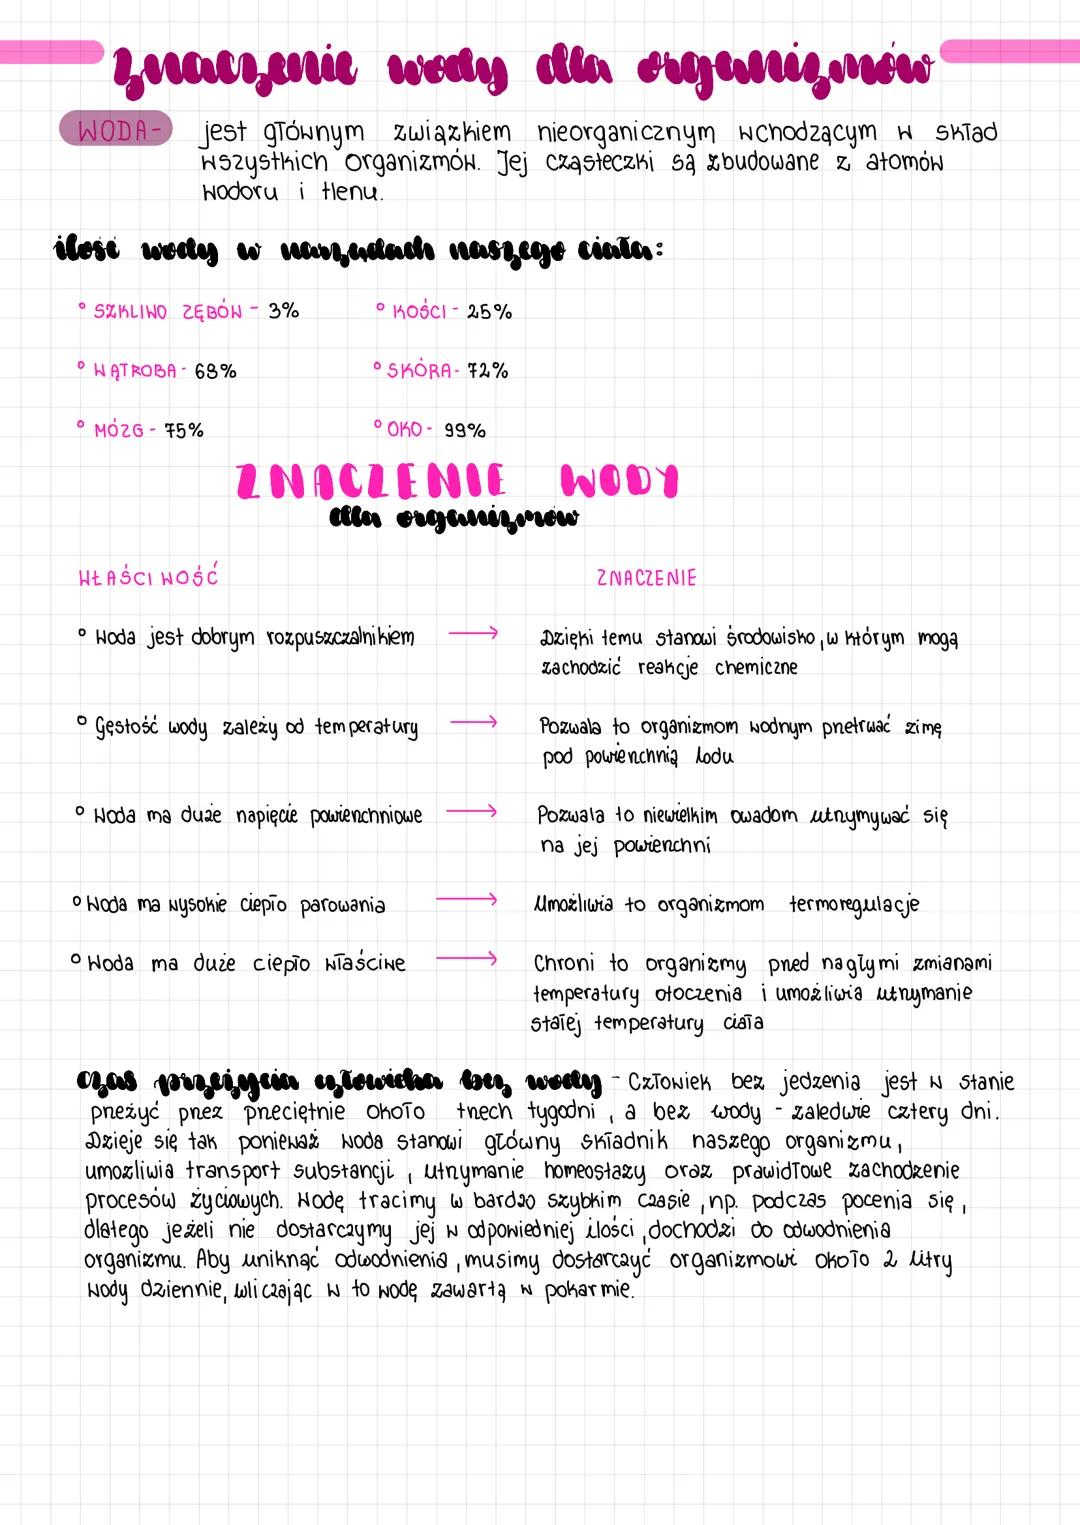 Znaczenie wody dla organizmów
WODA- jest głównym związkiem nieorganicznym wchodzącym w skład
wszystkich organizmów. Jej cząsteczki są zbudowane z atomów
wodoru i tlenu.
ilość wody w narządach naszego ciała:
° SZKLIWO ZĘBÓW - 3% ° KOŚCI - 25%
° WĄTROBA - 68% ° SKÓRA - 72%
° MÓZG - 75% ° OKO - 99%
ZNACZENIE WODY
dla organizmów
WŁAŚCIWOŚĆ ZNACZENIE
° Woda jest dobrym rozpuszczalnikiem → Dzięki temu stanowi środowisko, w którym mogą
zachodzić reakcje chemiczne
° Gęstość wody zależy od temperatury → Pozwala to organizmom wodnym przetrwać zimę
pod powierzchnią lodu
° Woda ma duże napięcie powierzchniowe → Pozwala to niewielkim owadom utrzymywać się
na jej powierzchni
° Woda ma wysokie ciepło parowania → Umożliwia to organizmom termoregulacje
° Woda ma duże ciepło właściwe → Chroni to organizmy przed nagłymi zmianami
temperatury otoczenia i umożliwia utrzymanie
stałej temperatury ciała
czas przeżycia człowieka bez wody - Człowiek bez jedzenia jest w stanie
przeżyć przez przeciętnie około trzech tygodni, a bez wody - zaledwie cztery dni.
Dzieje się tak ponieważ woda stanowi główny składnik naszego organizmu,
umożliwia transport substancji, utrzymanie homeostazy oraz prawidłowe zachodzenie
procesów życiowych. Wodę tracimy w bardzo szybkim czasie, np. podczas pocenia się,
dlatego jeżeli nie dostarczymy jej w odpowiedniej ilości, dochodzi do odwodnienia
organizmu. Aby uniknąć odwodnienia, musimy dostarczyć organizmowi około 2 litry
wody dziennie, wliczając w to wodę zawartą w pokarmie.